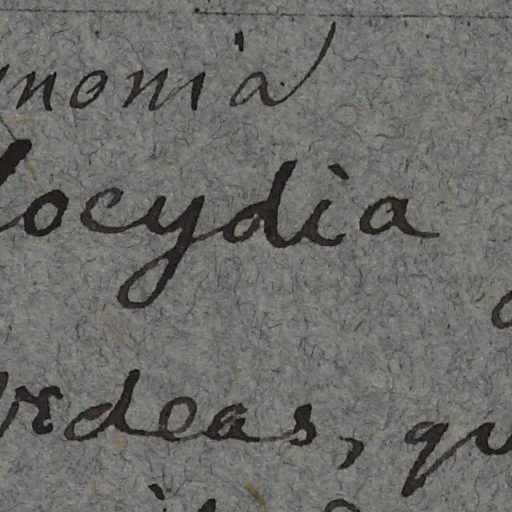 nonia
locydia
rdeas, qu